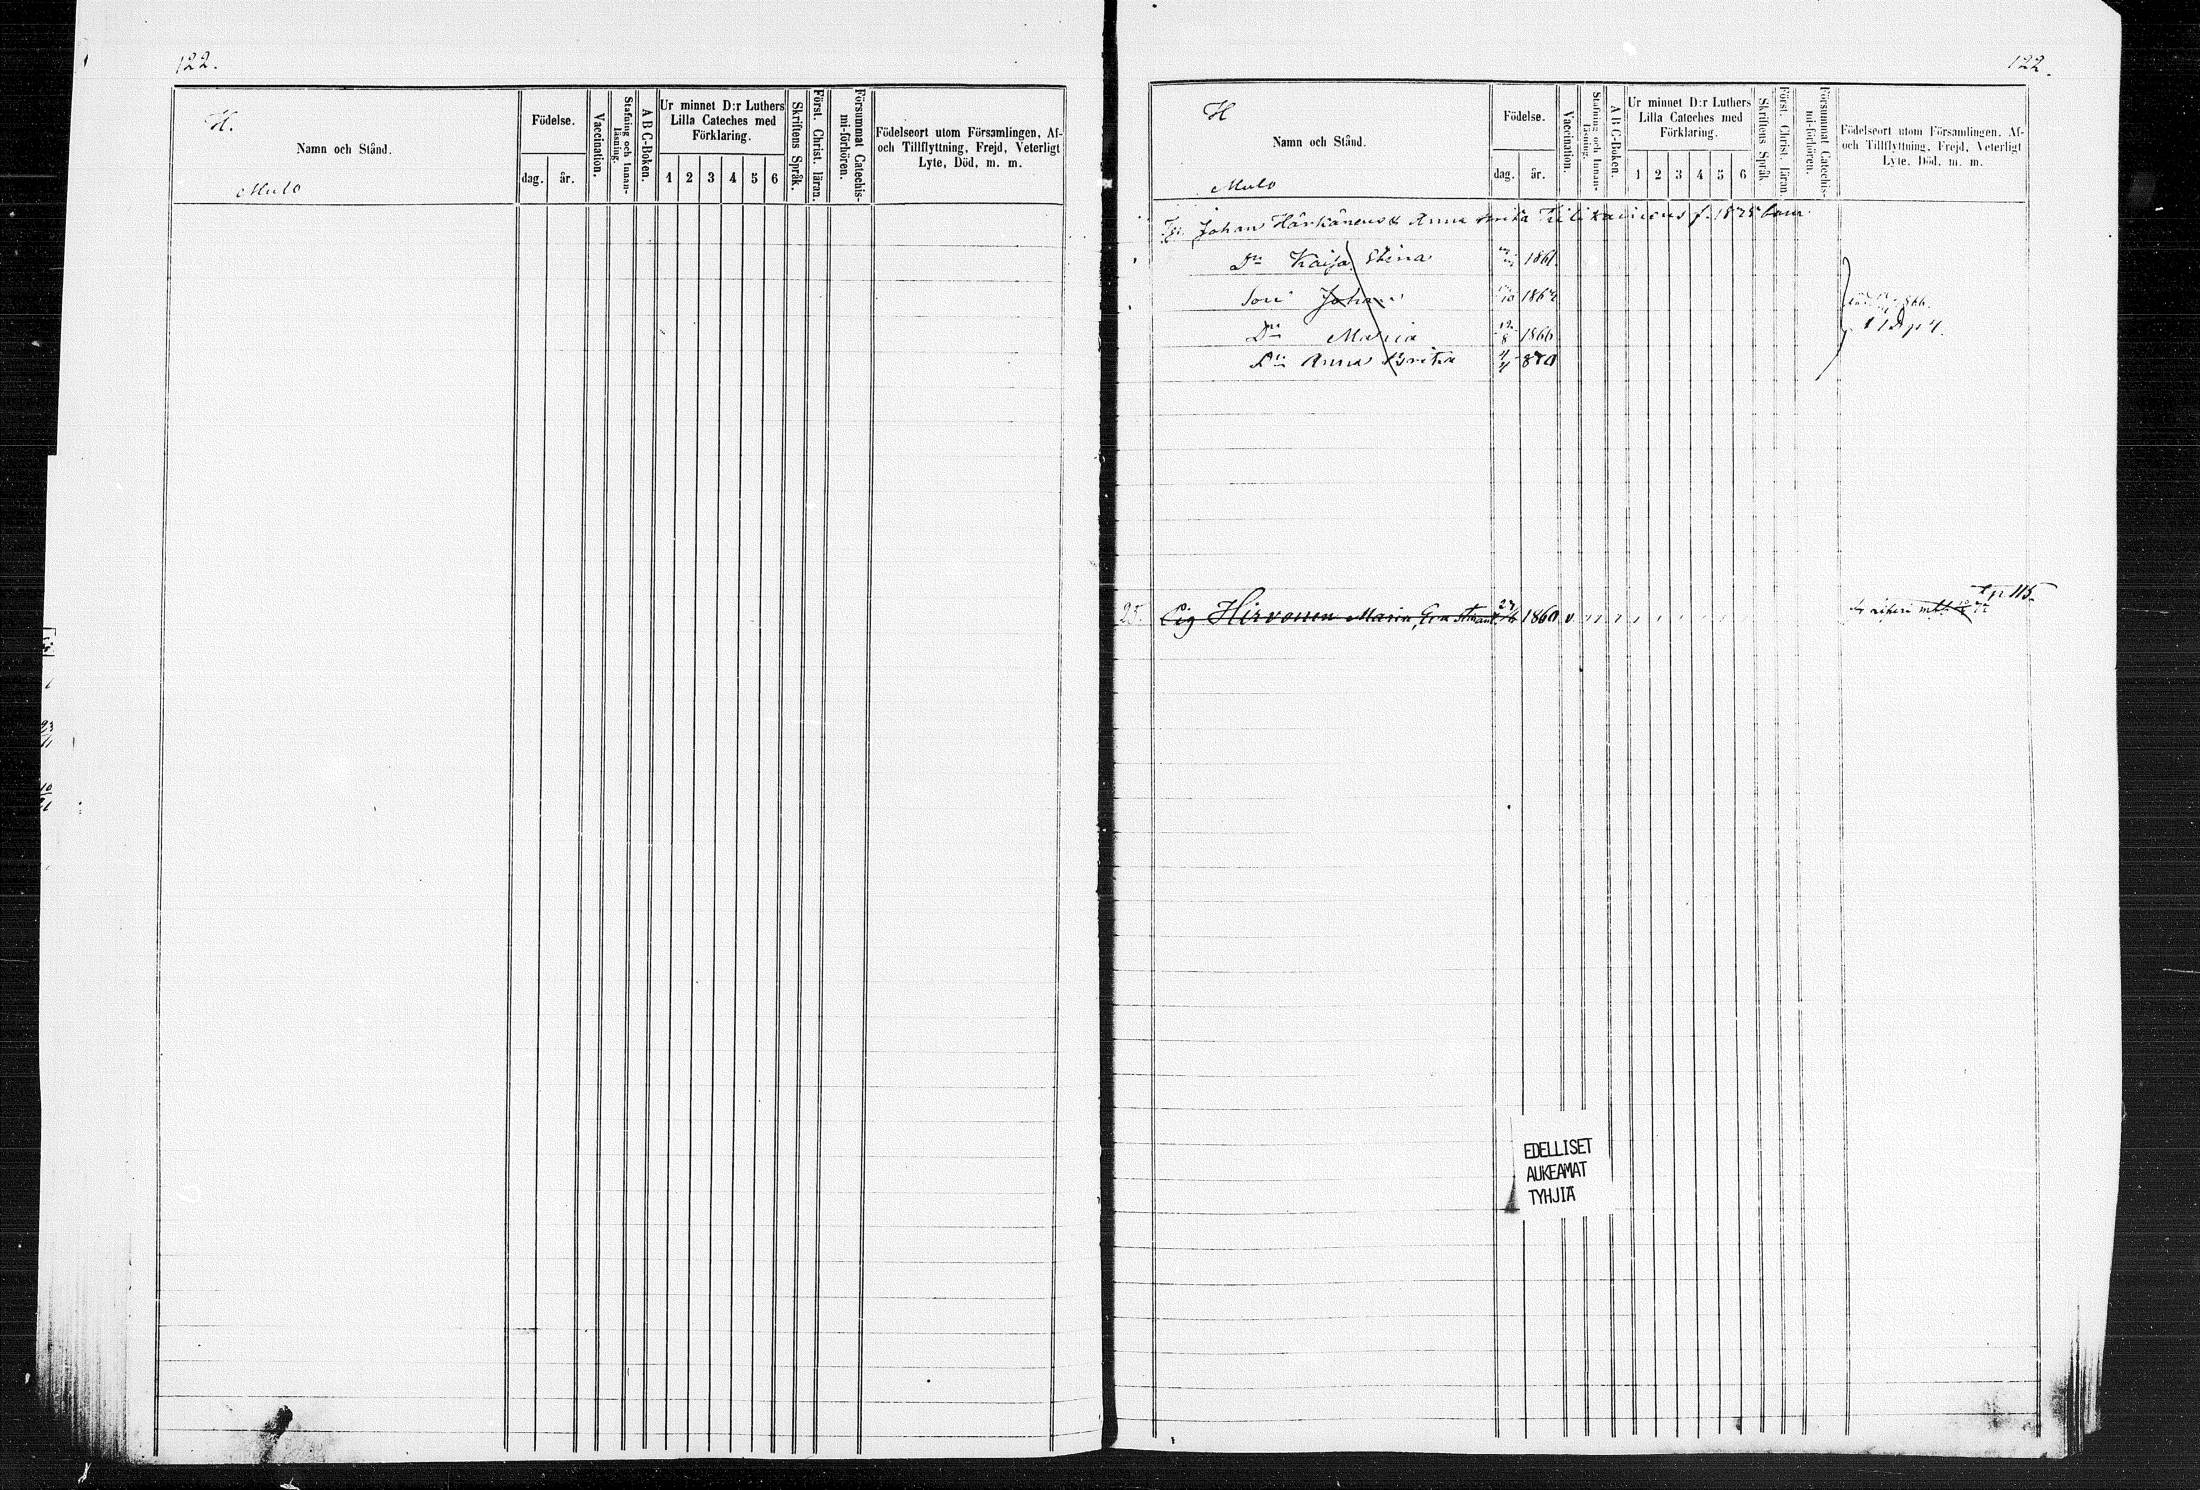 122.
H.
Namn och Stånd.
Mulo
Födelse.
dag. år.
Vaccination.
Stafning och Innanläsning.
A B C-Boken.
Ur minnet D:r Luthers
Lilla Cateches med
Förklaring.
1 2 3 4 5 6
Skriftens Språk.
Först. Christ. läran.
Försummat Catechismi-förhören.
Födelseort utom Församlingen, Af-
och Tillflyttning, Frejd, Veterligt
Lyte, Död, m. m.
122.
H
Namn och Stånd.
Mulo
Födelse.
dag. år.
Vaccination.
Stafning och Innanläsning.
A B C-Boken.
Ur minnet D:r Luthers
Lilla Cateches med
Förklaring.
1 2 3 4 5 6
Skriftens Språk
Först. Christ. läran.
Försummat Catechismi-förhören.
Födelseort utom Församlingen, Af-
och Tillflyttning, Frejd, Veterligt
Lyte, Död, m. m.
Johan Härkänens & Anna f. 1825 barn
Dr Kaisa Stina 1861.
Son Johan 10 186
Dr Maria 19/8 1866
Dr Anna Brita 870
25. Pig Hirvonen Maria, 1860 v
p 115.
EDELLISET
AUKEAMAT
TYHJIÄ